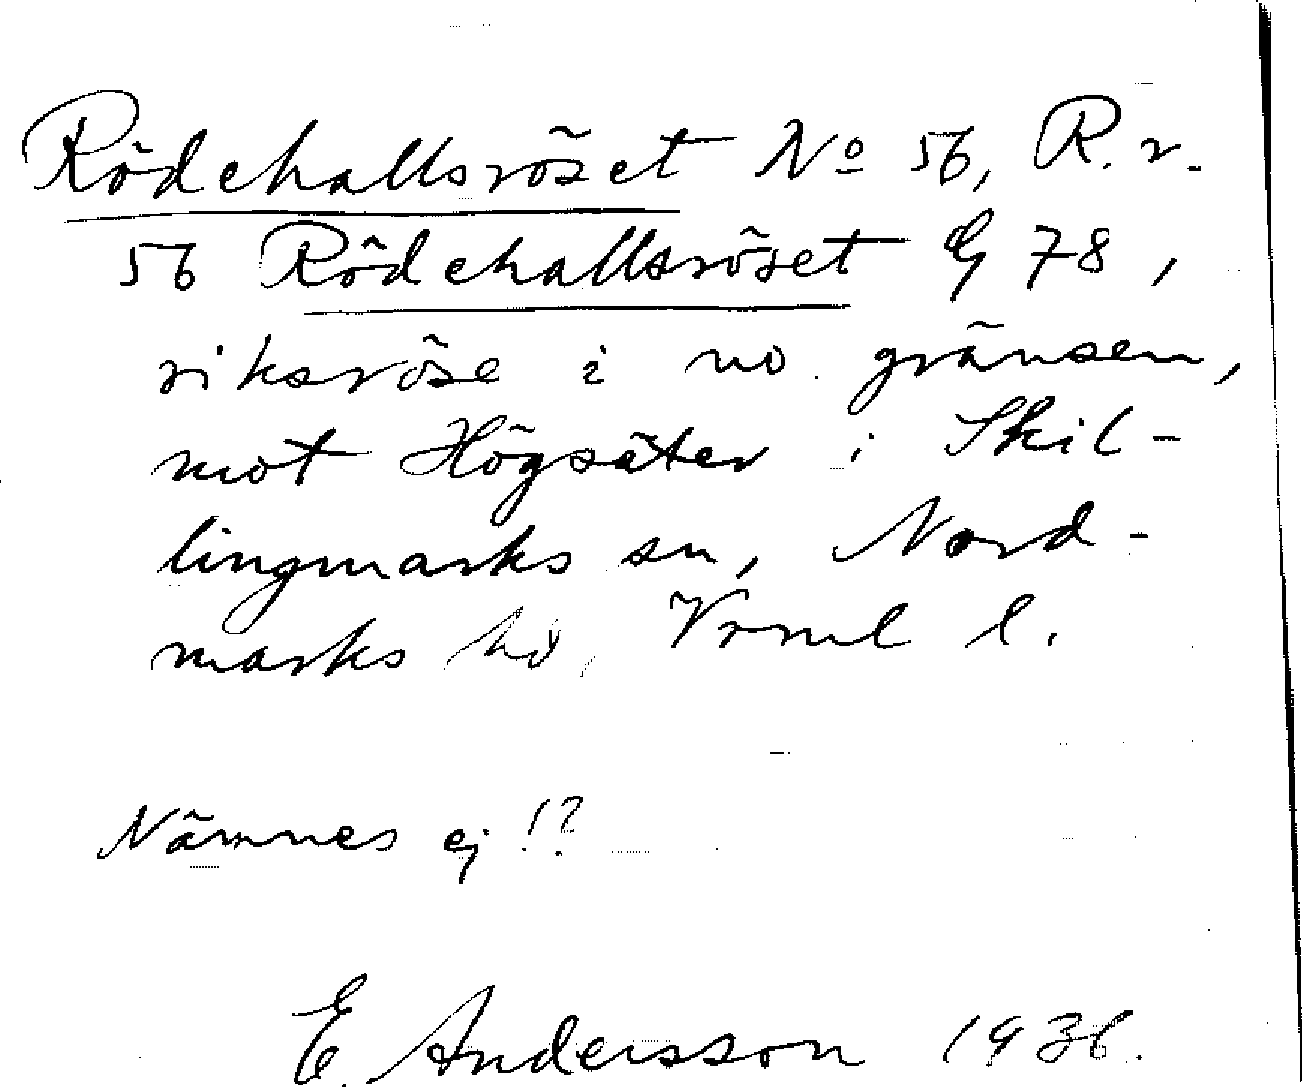 Rödehallsröset No 56, R. r.
56 Rödehallsröset G 78,
riksröse i no gränsen,
mot Högsäter i Skil-
lingmarks sn, Nord-
marks hd, Vrml l.
Nämnes ej!?
E. Andersson 1936.